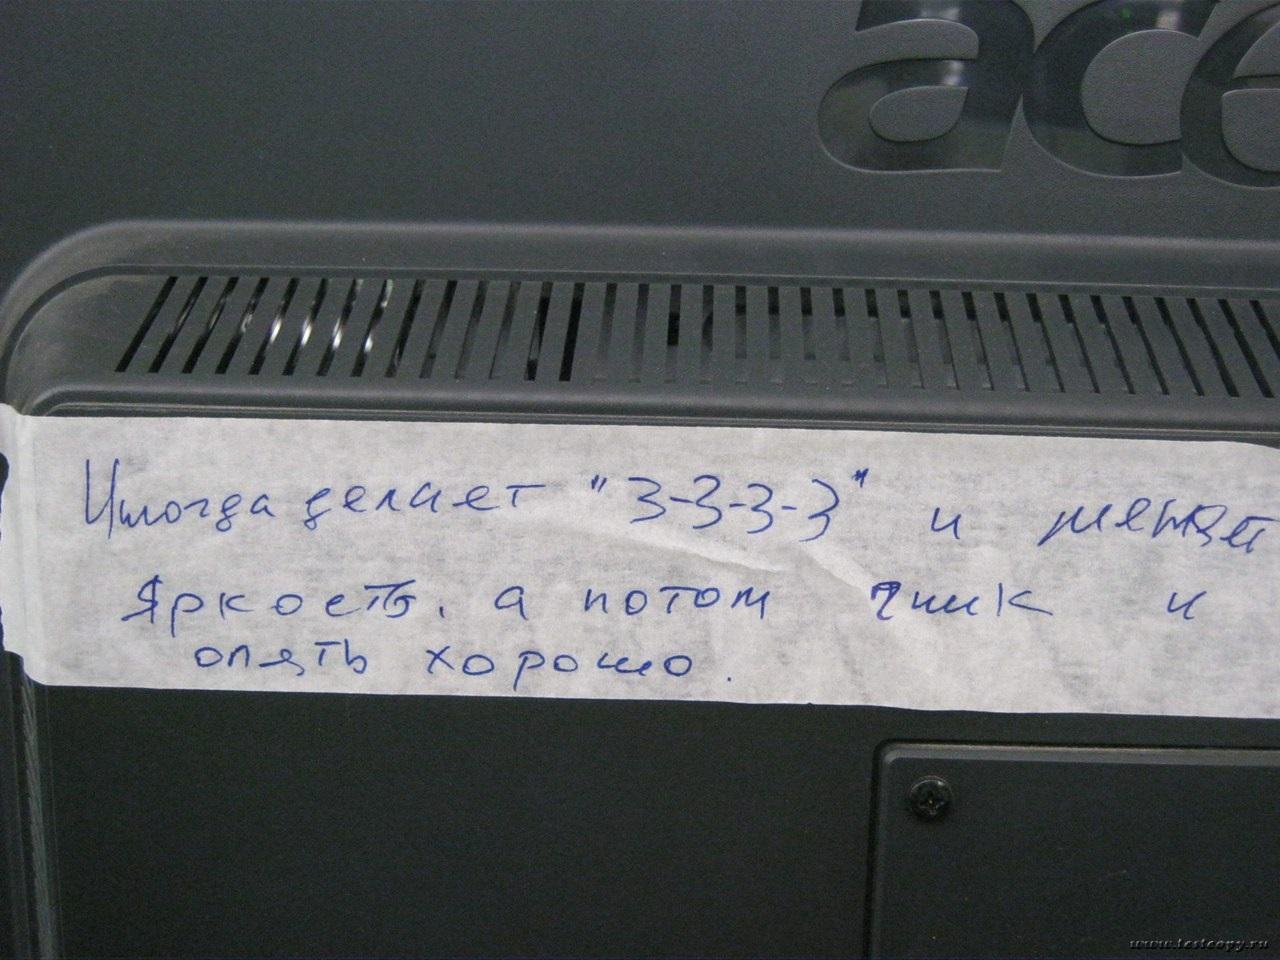 ace
Иногда делает "З-З-З-З" и меняет
яркость, а потом чик и
опять хорошо.
www.testcopy.ru